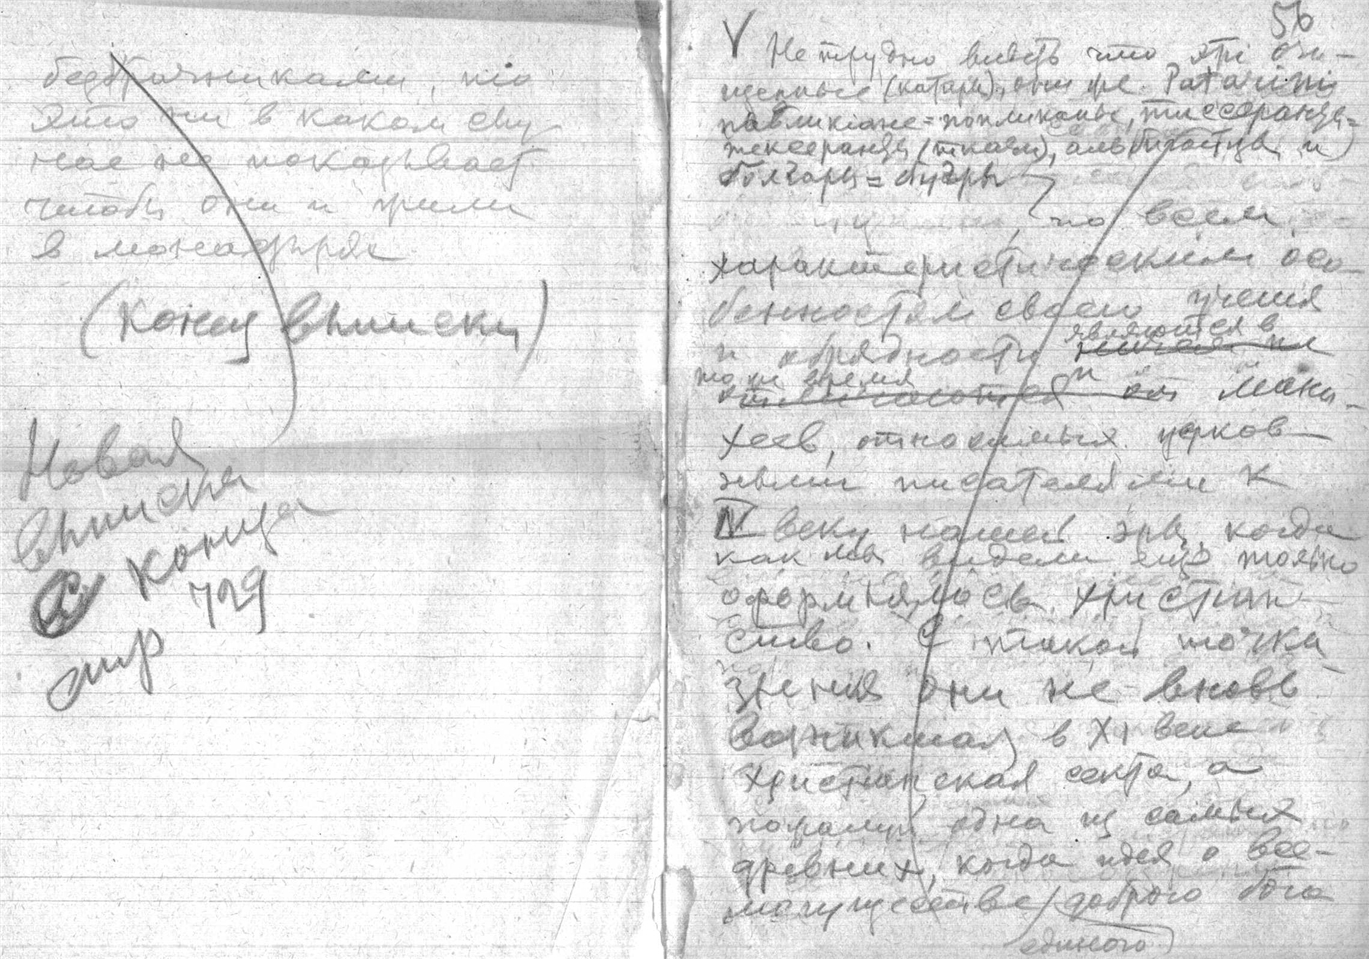 безбрачниками, но
это ни в каком слу-
чае не показывает
чтобы они и жили
в монастырях
(Конец выписки)
Новая
выписка
с конца
стр 729
56
V Не трудно видеть что эти очи-
щенные (катары), они же Patarini
павликиане = попликаны, тиссеранцы =
тексеранцы (ткачи), альбигойцы и
болгары = бугры
, по всем
характеристическим осо-
бенностям своего учения
и обрядности являются в
то же время и мани-
хеев, относимых церков-
ными писателями к
IV веку нашей эры, когда
как мы видели еще только
оформлялось христиан-
ство. С такой точки
зрения они не вновь
возникшая в XI веке
христианская секта, а
пожалуй одна из самых
древних, когда идея о все-
могуществе доброго бога
единого